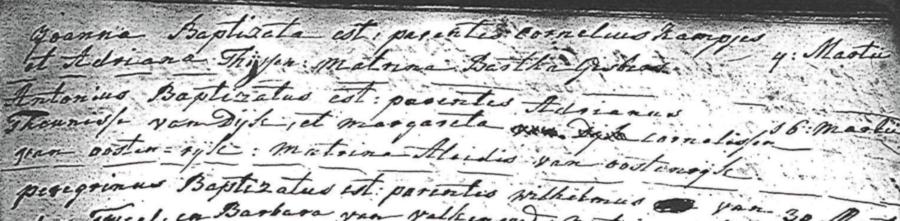 Joanna Baptizata est: parentes Cornelius Kampjes
et Adriana Thijssen: matrina Bartha 4: Martii
Antonius Baptizatus est: parentes Adrianus
Theunisse van Dijk, et margareta Cornelissen 16: Martii
van oosten-rijk: matrina Aleidis van oostenrijk
peregrinus Baptizatus est: parentes wilhelmus van
en Barbara van